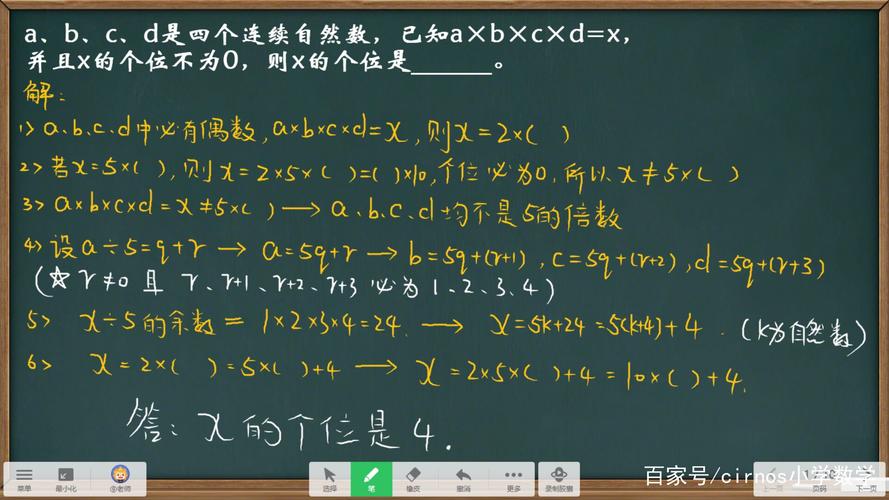 a、b、c、d是四个连续自然数，已知a×b×c×d=x，
并且x的个位不为0，则x的个位是______。
解：
1> a.b.c.d中必有偶数, a×b×c×d=x, 则x=2×( )
2> 若x=5×( ), 则x=2×5×( )=( )×10, 个位必为0, 所以x≠5×( )
3> a×b×c×d=x≠5×( ) → a.b.c.d均不是5的倍数
4> 设a÷5=q+r → a=5q+r → b=5q+(r+1), c=5q+(r+2), d=5q+(r+3)
(☆ r≠0 且 r、r+1、r+2、r+3 必为1、2、3、4)
5> x÷5的余数=1×2×3×4=24. → x=5k+24=5(k+4)+4. (k为自然数)
6> x=2×( )=5×( )+4 → x=2×5×( )+4=10×( )+4.
答：x的个位是4.
百家号/cirnos小学数学
菜单 最小化 @老师 选择 笔 橡皮 撤消 更多 录制胶囊 上一页 下一页